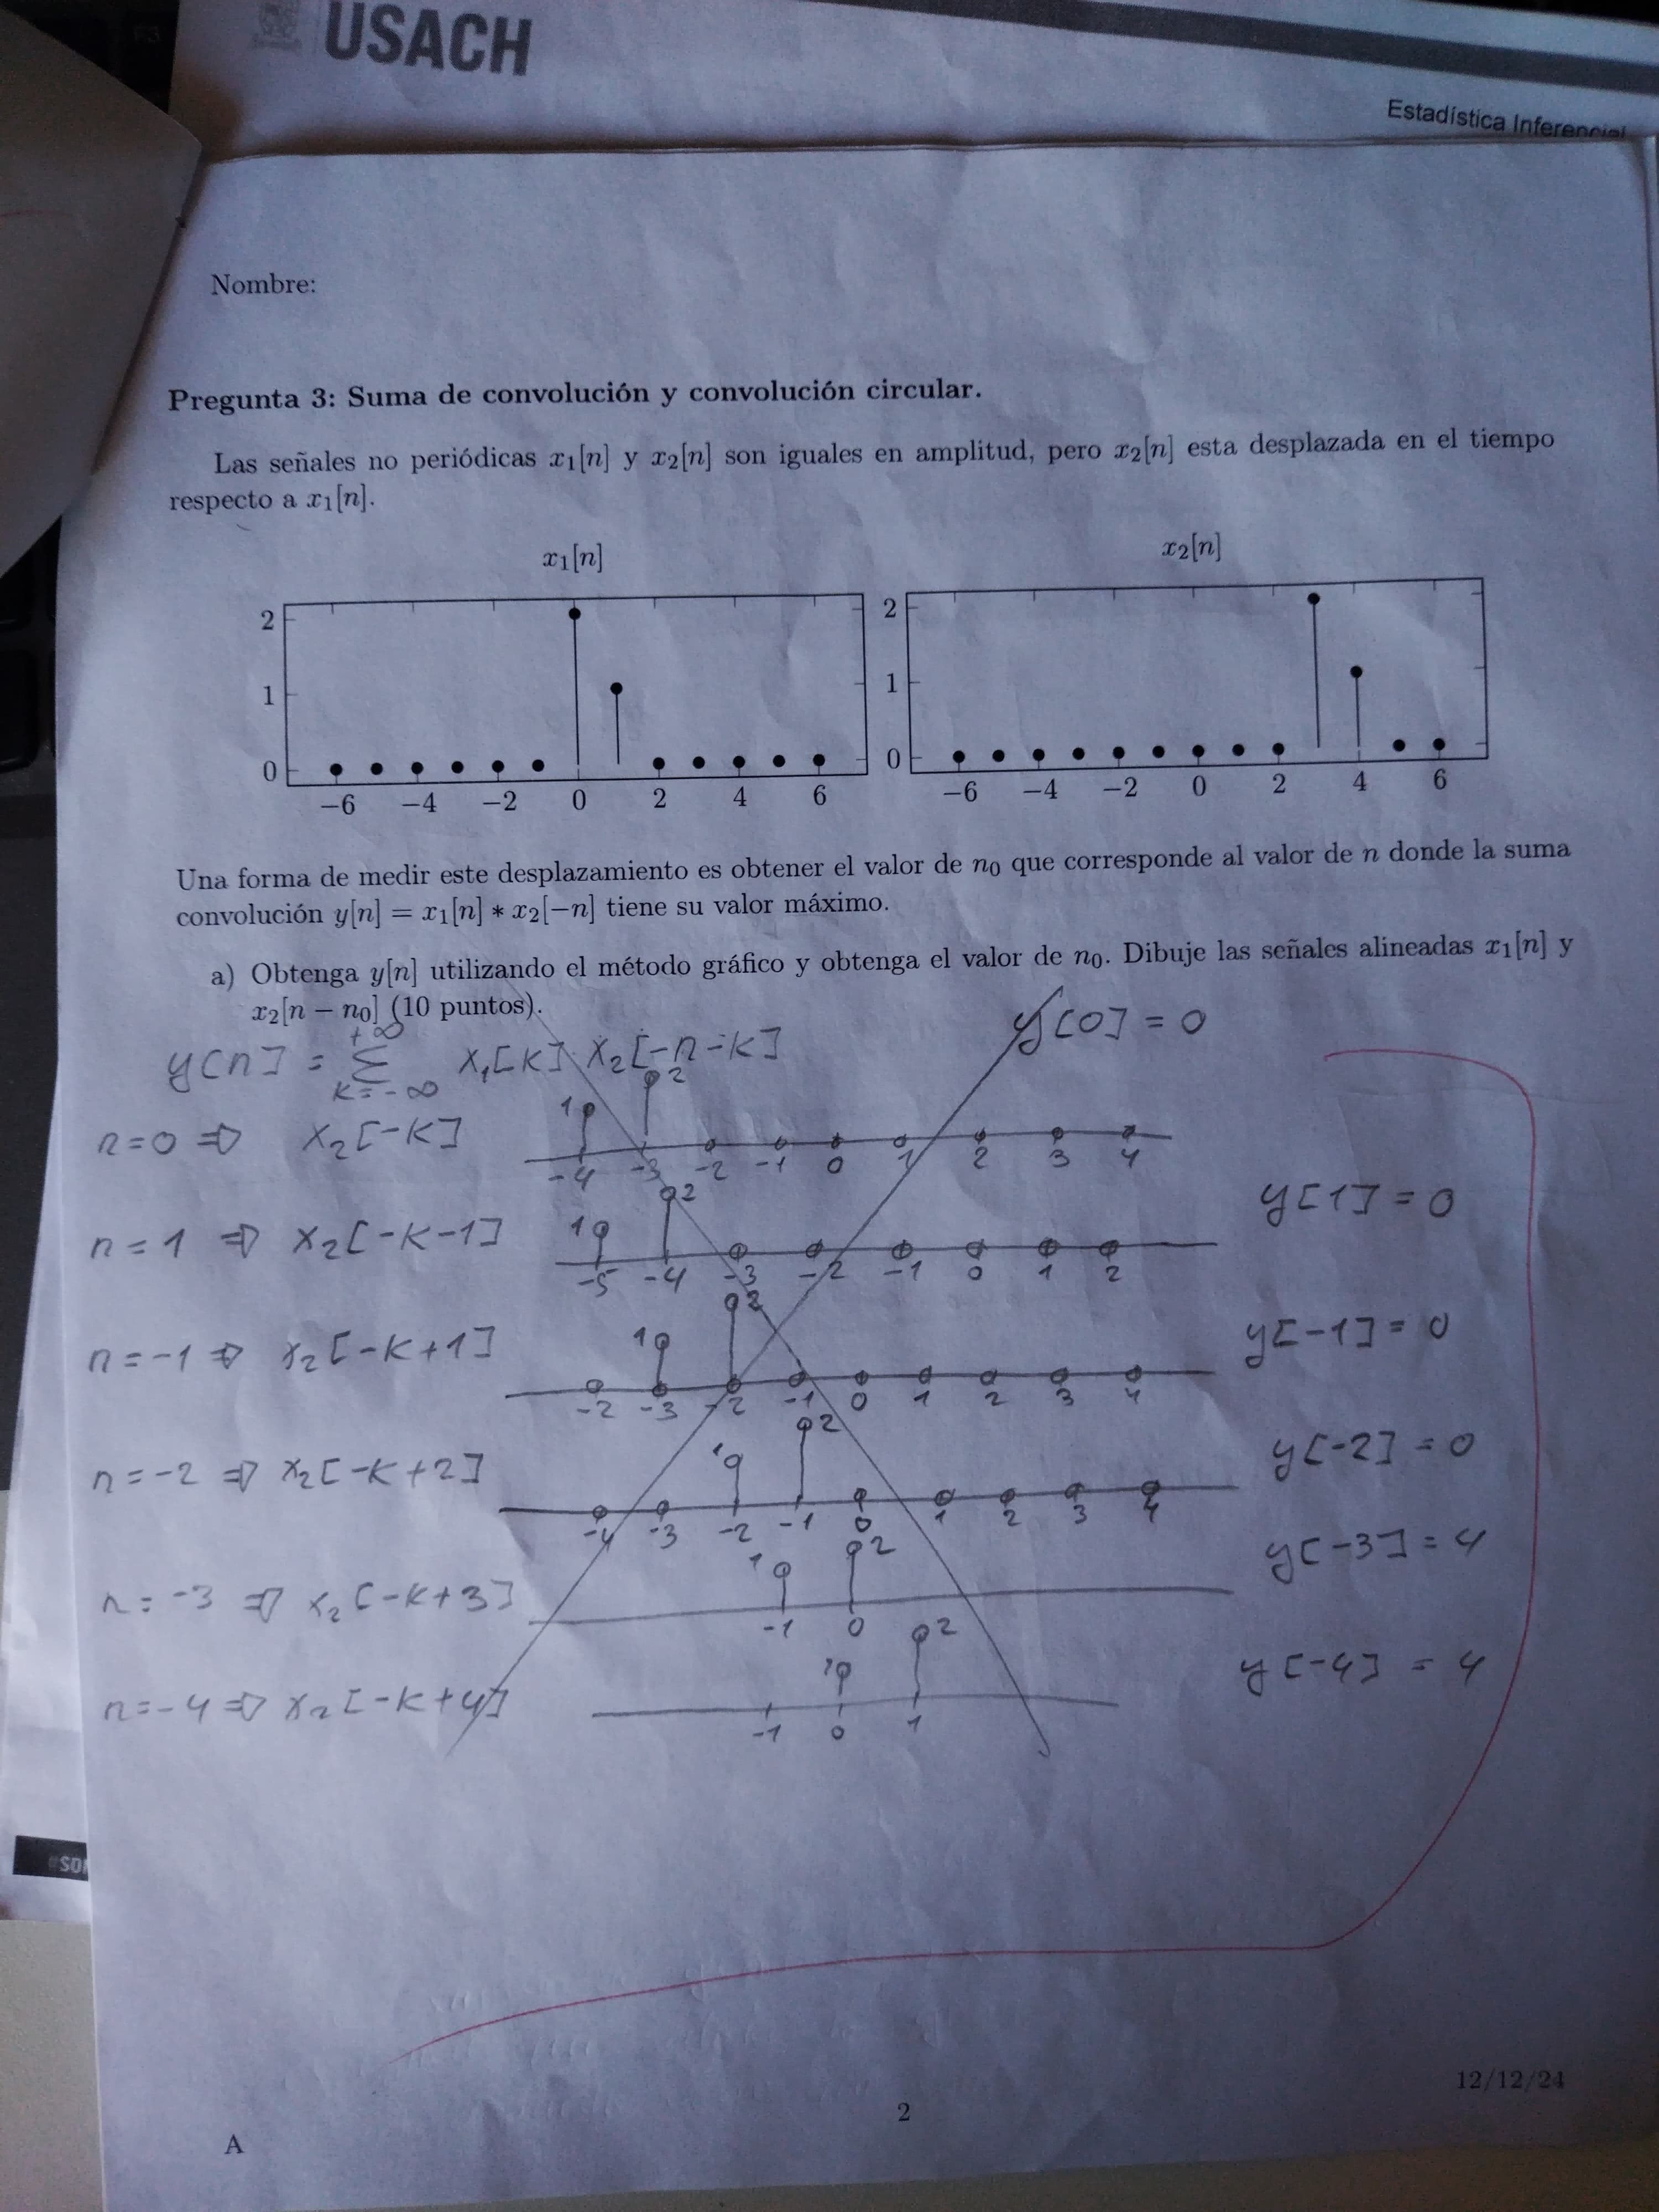 USACH
Estadística Inferencial
Nombre:
Pregunta 3: Suma de convolución y convolución circular.
Las señales no periódicas x₁[n] y x₂[n] son iguales en amplitud, pero x₂[n] esta desplazada en el tiempo
respecto a x₁[n].
x₁[n]
x₂[n]
2
1
0
−6 −4 −2 0 2 4 6
2
1
0
−6 −4 −2 0 2 4 6
Una forma de medir este desplazamiento es obtener el valor de n₀ que corresponde al valor de n donde la suma
convolución y[n] = x₁[n] ∗ x₂[−n] tiene su valor máximo.
a) Obtenga y[n] utilizando el método gráfico y obtenga el valor de n₀. Dibuje las señales alineadas x₁[n] y
x₂[n − n₀] (10 puntos).
y[n] = +∞ Σ k=-∞ x₁[k]·x₂[-n-k]
y[0] = 0
n=0 ⇒ x₂[-k]
1 2
-4 -3 -2 -1 0 1 2 3 4
n=1 ⇒ x₂[-k-1]
1 2
-5 -4 -3 -2 -1 0 1 2
y[1] = 0
n=-1 ⇒ x₂[-k+1]
1 2
-2 -3 -2 -1 0 1 2 3 4
y[-1] = 0
n=-2 ⇒ x₂[-k+2]
1 2
-4 -3 -2 -1 0 1 2 3 4
y[-2] = 0
n=-3 ⇒ x₂[-k+3]
1 2
-1 0
y[-3] = 4
n=-4 ⇒ x₂[-k+4]
1 2
-1 0 1
y[-4] = 4
12/12/24
2
A